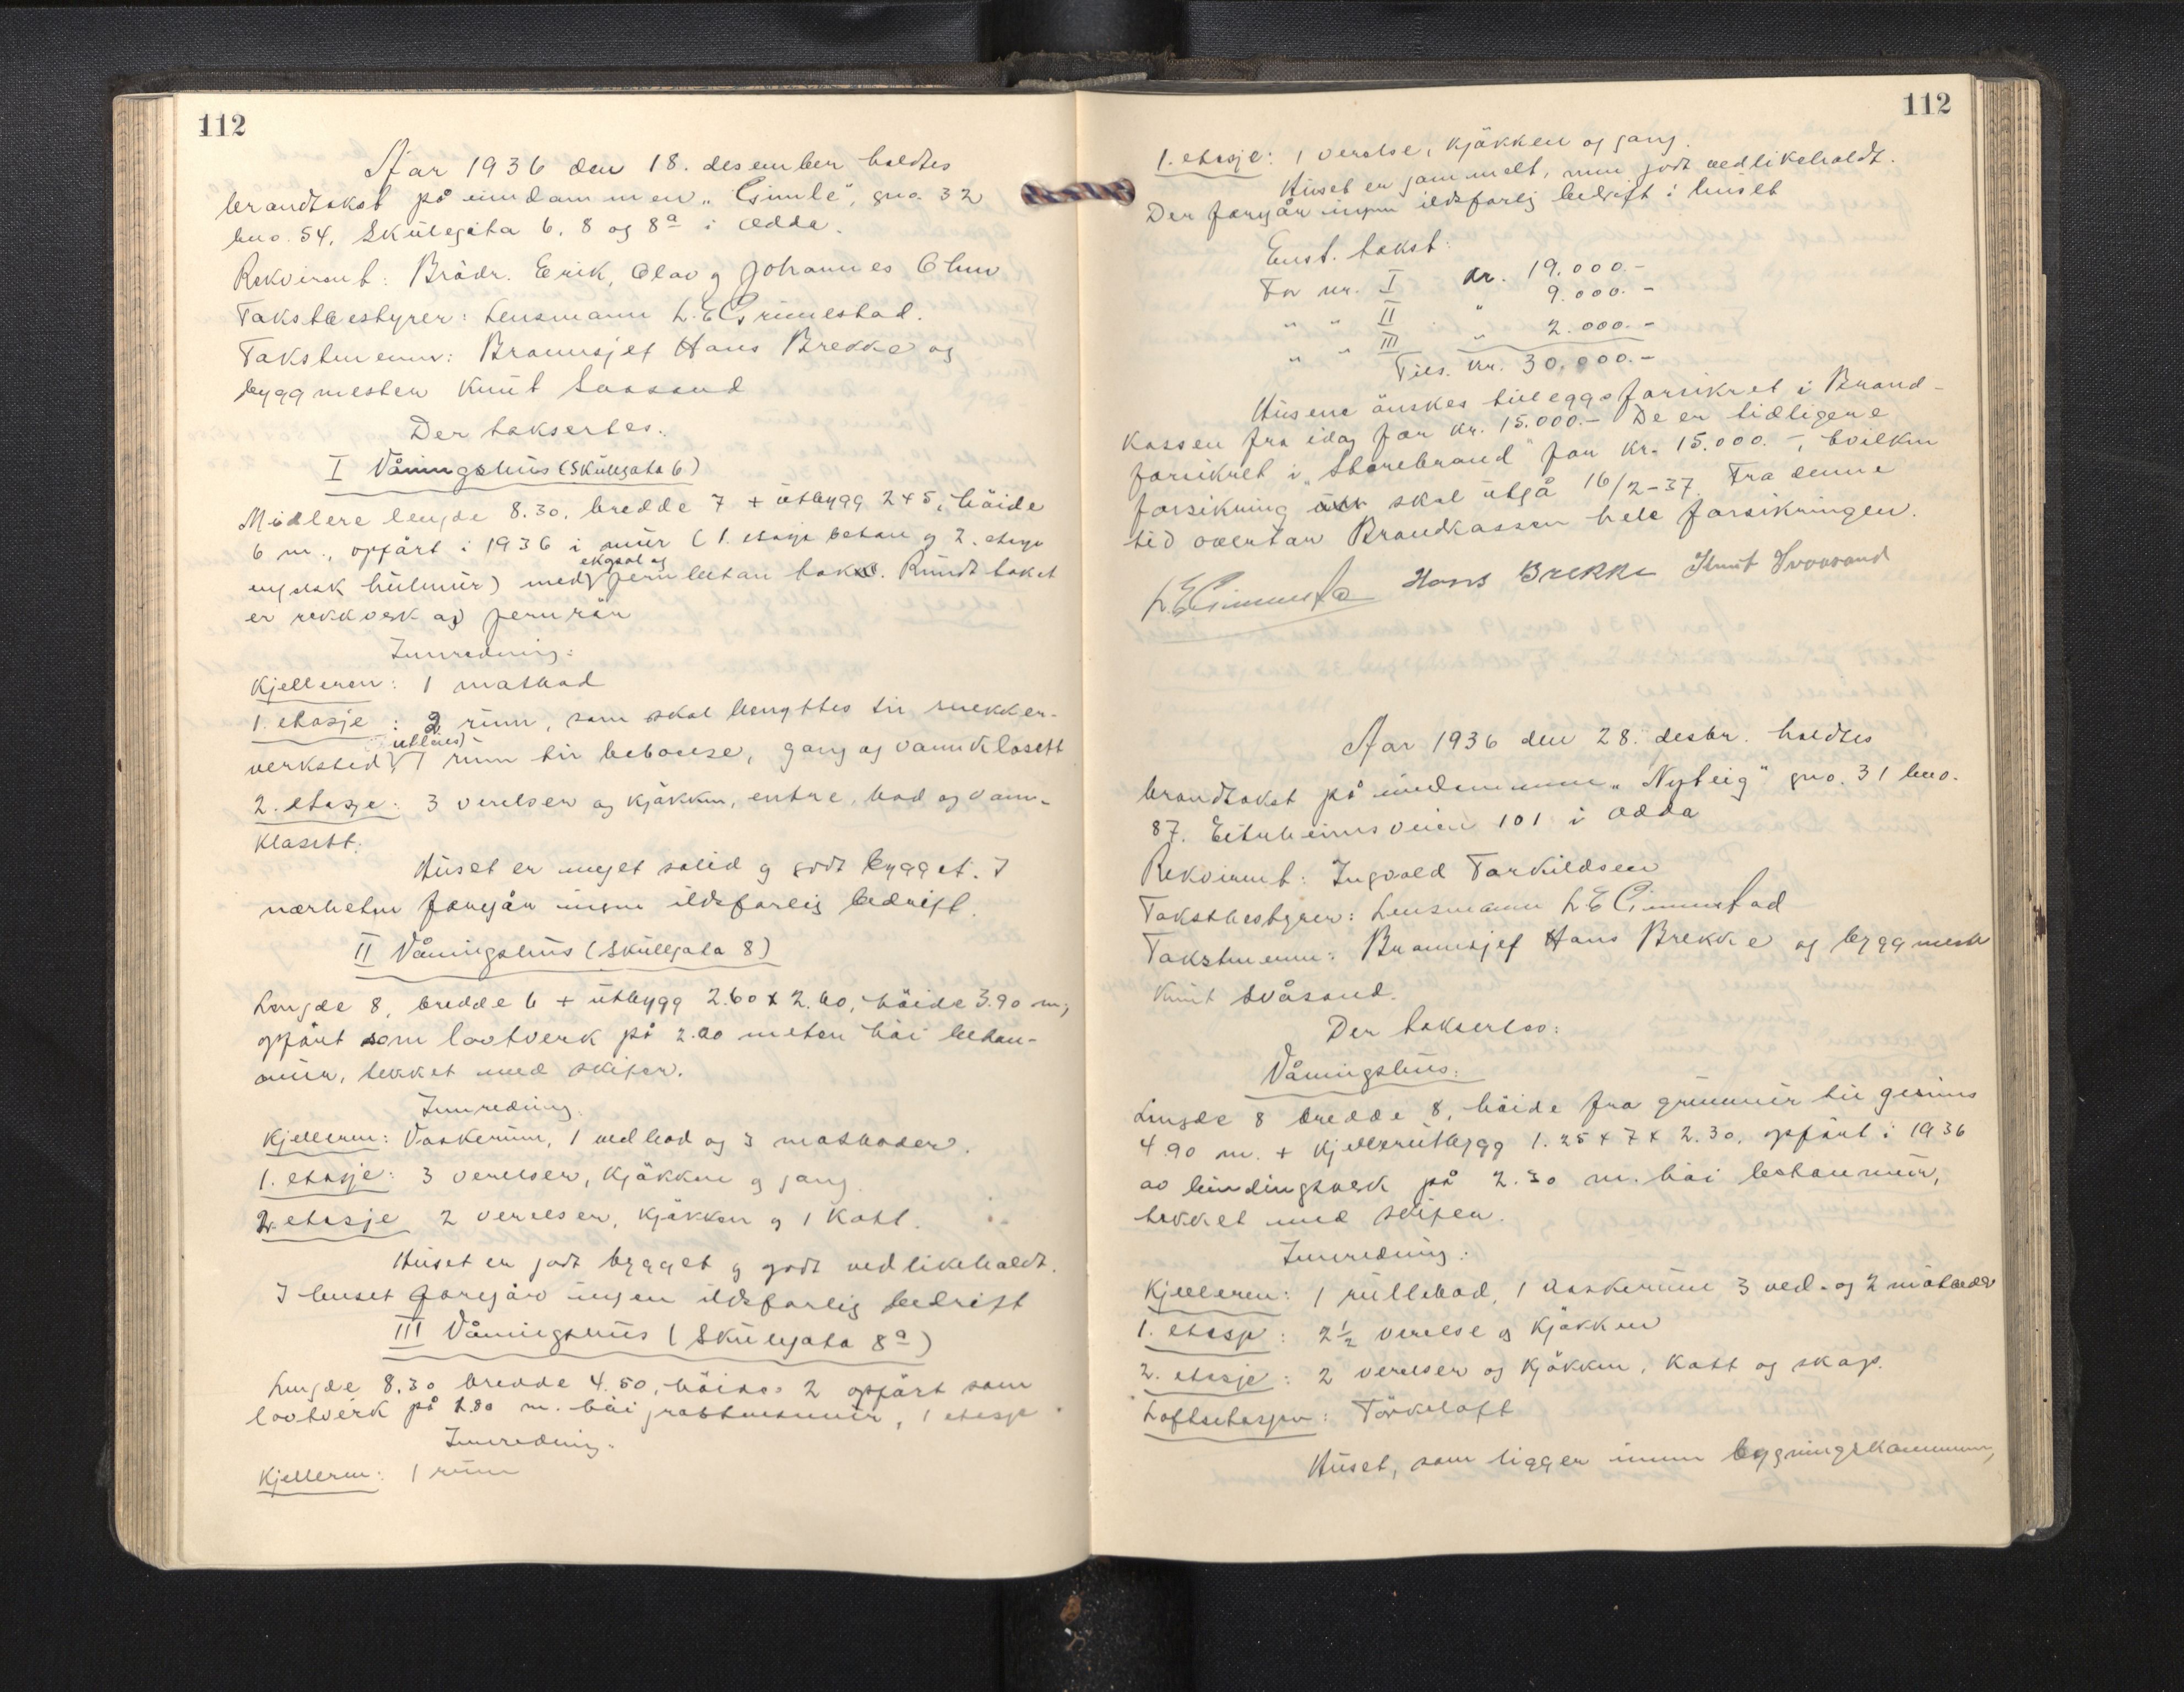 112
Aar 1936 den 18. desember holdtes
brandtakst på eiendommen „Gimle", gno. 32
bno. 54, Skulegata 6, 8 og 8a i Odda.
Rekvirent: Brödr. Erik, Olav og Johannes
Takstbestyrer: Lensmann L. E. Grimestad.
Takstmenn: Brannsjef Hans Brekke og
byggmester Knut
Der taksertes:
I Våningshus (Skulegata 6)
Midlere lengde 8.30, bredde 7 + utbygg 2+5, höide
6 m., opfört i 1936 i mur (1. etasje betong og 2. etasje
engelsk hulmur) med jernbetong tak. Rundt taket
er rekkverk av jernrör
Innredning:
Kjelleren: 1 matbod
1. etasje: 2 rum, som skal benyttes til snekker-
verksted, 1 rum til beboelse, gang og vannklosett
2. etasje: 3 verelser og kjökken, entre, bad og vann-
klosett.
Huset er meget solid og godt bygget. I
nærheten foregår ingen ildsfarlig bedrift.
II Våningshus (Skulegata 8)
Lengde 8, bredde 6 + utbygg 2.60 x 2.60, höide 3.90 m,
opfört som lovtverk på 2.20 meter höi betong-
mur, tekket med skifer.
Innredning.
Kjelleren: Vaskerum, 1 vedbod og 3 matboder.
1. etasje: 3 verelser, kjökken og gang.
2. etasje 2 verelser, kjökken og 1 kott.
Huset er godt bygget og godt vedlikeholdt.
I huset foregår ingen ildsfarlig bedrift
III Våningshus (Skulegata 8a)
Lengde 8.30 bredde 4.50, höide 2 opfört som
lovtverk på 2.80 m. höi gråstensmur, 1 etasje
Innredning.
Kjelleren: 1 rum
112
1. etasje: 1 verelse, kjökken og gang.
Huset er gammelt, men godt vedlikeholdt.
Der foregår ingen ildsfarlig bedrift i huset
Enst. takst:
For nr. I kr. 19.000.-
" " II " 9.000.-
" " III " 2.000.-
Tils. kr. 30.000.-
Husene önskes tilleggsforsikret i Brand-
kassen fra idag for kr. 15.000.- De er tidligere
forsikret i „Storebrand" for kr. 15.000.-, hvilken
forsikring skal utgå 16/2-37. Fra denne
tid overtar Brandkassen hele forsikringen.
L. E. Grimestad Hans Brekke Knut Svåsand
Aar 1936 den 28. desbr. holdtes
brandtakst på eiendommen „Nyteig" gno. 31 bno.
87. Eitrheimsveien 101 i Odda
Rekvirent: Ingvald Torkildsen
Takstbestyrer: Lensmann L. E. Grimestad
Takstmenn: Brannsjef Hans Brekke og byggmester
Knut Svåsand.
Der takseres:
Våningshus:
Lengde 8 bredde 8, höide fra grunnmur til gesims
4.90 m. + kjellerutbygg 1.25 x 7 x 2.30, opfört i 1936
av bindingsverk på 2.30 m. höi betongmur,
tekket med skifer.
Innredning:
Kjelleren: 1 rullebod, 1 vaskerum 3 ved- og 2 matboder
1. etasje: 2½ verelse og kjökken
2. etasje: 2 verelser og kjökken, kott og skap.
Loftsetasjen: Törkeloft
Huset, som ligger innen bygningskommunen,